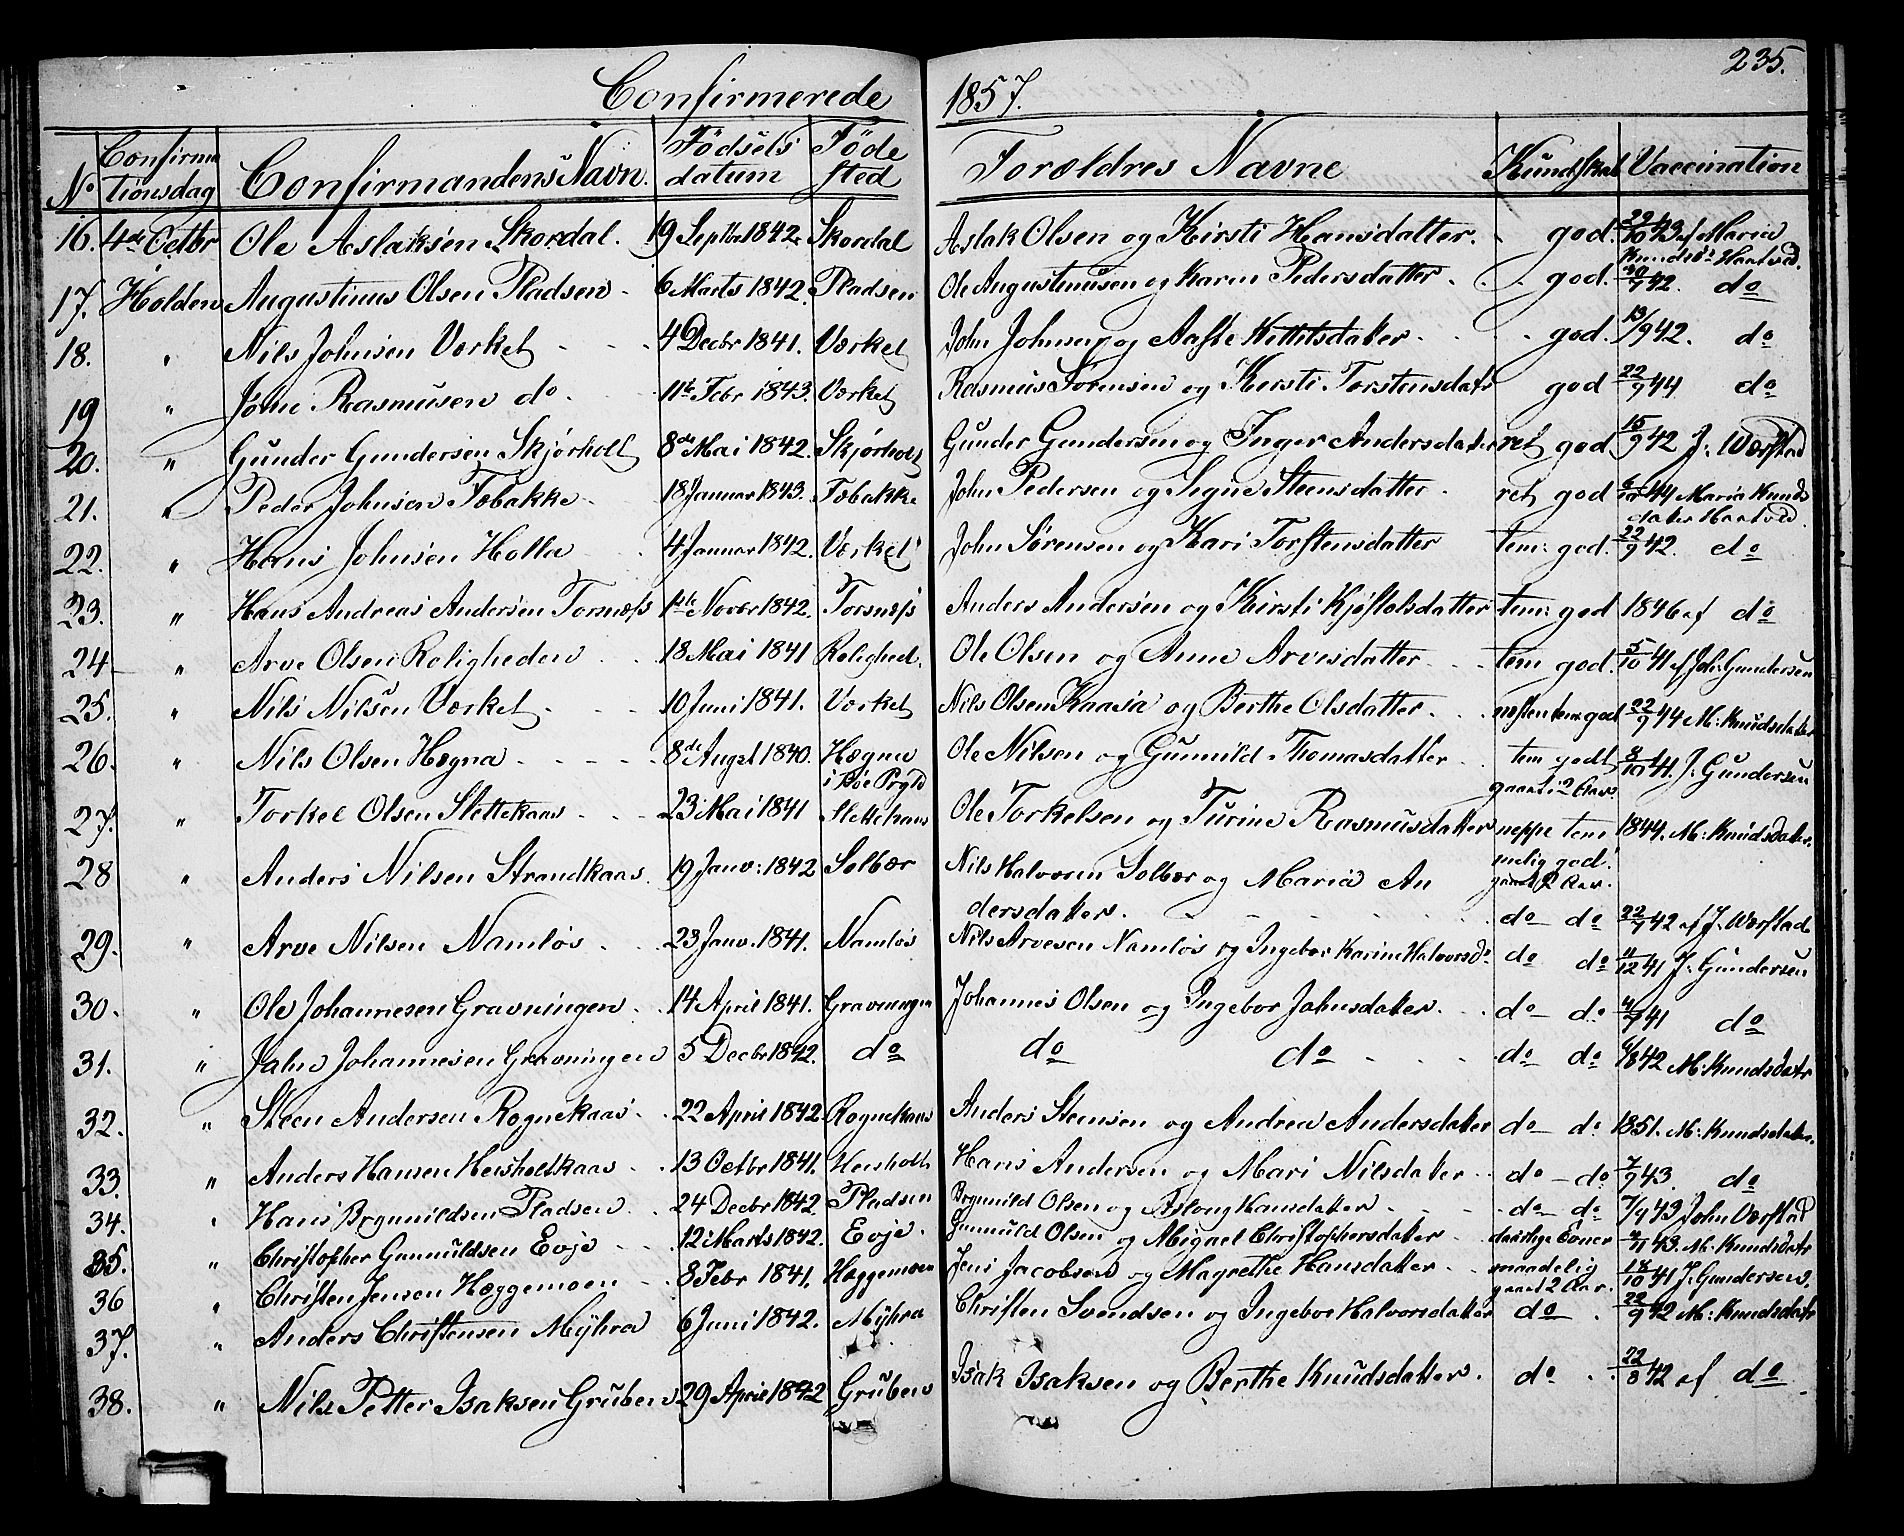 235.
Confirmerede 1857.
No Confirmationsdag Confirmandens Navn. Fødsels datum Føde sted Forældres Navne Kundskab Vaccination
16. 4de Octbr Ole Aslaksen Skordal. 19 Septbr 1842. Skordal Aslak Olsen og Kirsti Hansdatter. god. 29/10 43 af Maria Knudsdr Haatved.
17. Holden Augustinus Olsen Pladsen 6 Marts 1842. Pladsen Ole Augustinusen og Karen Pedersdatter. god. 42. do
18. " Nils Johnsen Værket 4 Decbr 1841. Værket John Johnsen og Aaste Kittilsdater god. 13/9 42. do
19 " Jøne Rasmusen do 11te Febr 1843. Værket Rasmus Sørensen og Kersti Torstensdatr god 22/9 44 do
20. " Gunder Gundersen Skjørholt 8de Mai 1842. Skjørholt Gunder Gundersen og Inger Andersdater ret god 15/9 42 J: Værstad
21. " Peder Johnsen Tæbakke 18 Januar 1843. Tæbakke John Pedersen og Signe Steensdatter ret god 6/10 44 Maria Knuds dater Haatved.
22. " Hans Johnsen Holla 4 Januar 1842. Værket John Sørensen og Kari Torstensdatter tem: god. 22/9 42. do
23. " Hans Andreas Andersen Torsnæss 1ste Novbr 1842. Torsnæss Anders Andersen og Kirsti Kjøstolsdatter tem: god 1846 af do
24 " Arve Olsen Roligheden 18 Mai 1841 Rolighed. Ole Olsen og Anne Arvesdatter tem god. 5/10 41 af Joh: Gundersen
25. " Nils Nilsen Værket 10 Juni 1841. Værket Nils Olsen Kaasa og Berthe Olsdatter. næsten tem: god 22/9 44 M: Knudsdater
26. " Nils Olsen Hægna 8de Augst 1840. Hægna i Bøe Prgld Ole Nilsen og Gunnild Thomasdatter tem godt gaaet i 2 Aar. 8/10 41. J: Gundersen
27. " Torkel Olsen Slettekaas 23 Mai 1841 Slettekaas Ole Torkelsen og Turine Rasmusdatter neppe tem 1844. M: Knudsdater.
28 " Anders Nilsen Strandkaas. 19 Janv: 1842 Solbær Nils Halvorsen Solbær og Maria An melig god. gaaet 2 Aar.
dersdater. do do 22/9 42 af J. Værstad
29. " Arve Nilsen Namløs 23 Janv. 1841. Namløs Nils Arvesen Namløs og Ingebor Karine Halvorsdr do do 11/12 41 J: Gundersen
30. " Ole Johannesen Gravningen 14 April 1841. Gravningen Johannes Olsen og Ingebor Jahnsdater. do do 4/9 41 do
31. " Jahn Johannesen Gravningen 5 Decbr 1842. do do do do do 6/8 42 M: Knudsdatr
32. " Steen Andersen Rognekaas 22 April 1842 Rognekaas Anders Steensen og Andrea Andersdater do do 1851. M: Knudsdater.
33. " Anders Hansen Heisholtkaas 13 Octbr 1841. Heisholt Hans Andersen og Mari Nilsdater do do 7/9 43. do
34. " Hans Brynnildsen Pladsen 24 Decbr 1842 Pladsen Brynnild Olsen og Asloug Hansdatter do do 7/9 43 John Værstad
35. " Christopher Gunnuldsen Evje 12 Marts 1842. Evje. Gunnuld Olsen og Migael Christophersdater daarlige Evner 4/11 43. M: Knudsdatr
36 " Christen Jensen Hæggemoen 8 Febr 1841. Hæggemoen Jens Jacobsen og Magrethe Hansdatter maadelig gaaet 2 Aar. 18/10 41 J: Gundersen.
37. " Anders Christensen Myhra 6 Juni 1842. Myhra Christen Svendsen og Ingebor Halvorsdater do 22/9 42 M: Knudsdatr
38. " Nils Petter Isaksen Gruben 29 April 1842 Gruben Isak Isaksen og Berthe Knudsdatter. do 22/8 42 af do